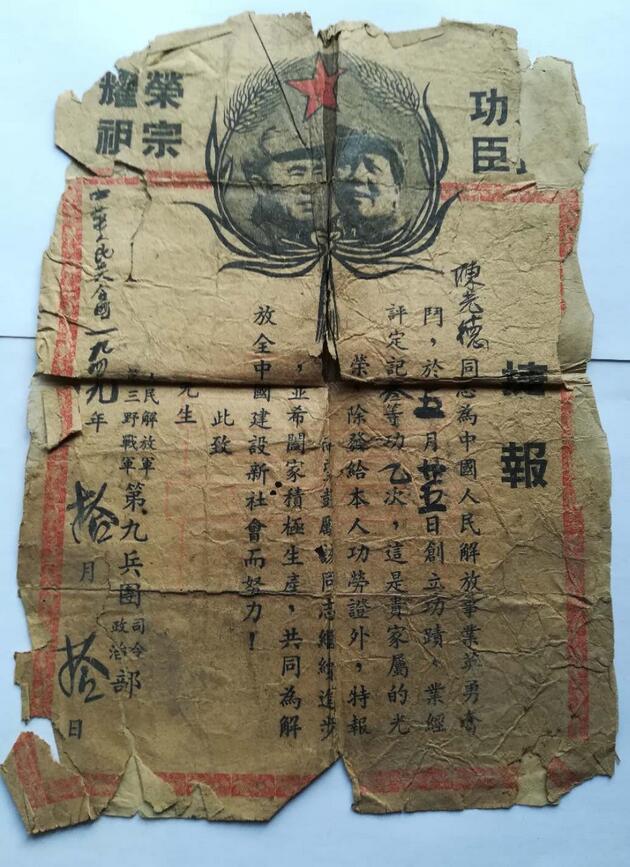 功臣
榮宗
耀祖
捷報
陳光德同志為中國人民解放事業英勇奮
鬥，於五月廿五日創立功蹟、業經
評定記叁等功乙次，這是貴家屬的光
榮，除發給本人功勞證外，特報
屬該同志繼續進步
，並希闔家積極生產，共同為解
放全中國建設新社會而努力！
此致
先生
人民解放軍
第三野戰軍
第九兵團
司令
政治
部
一九四九年拾月拾日